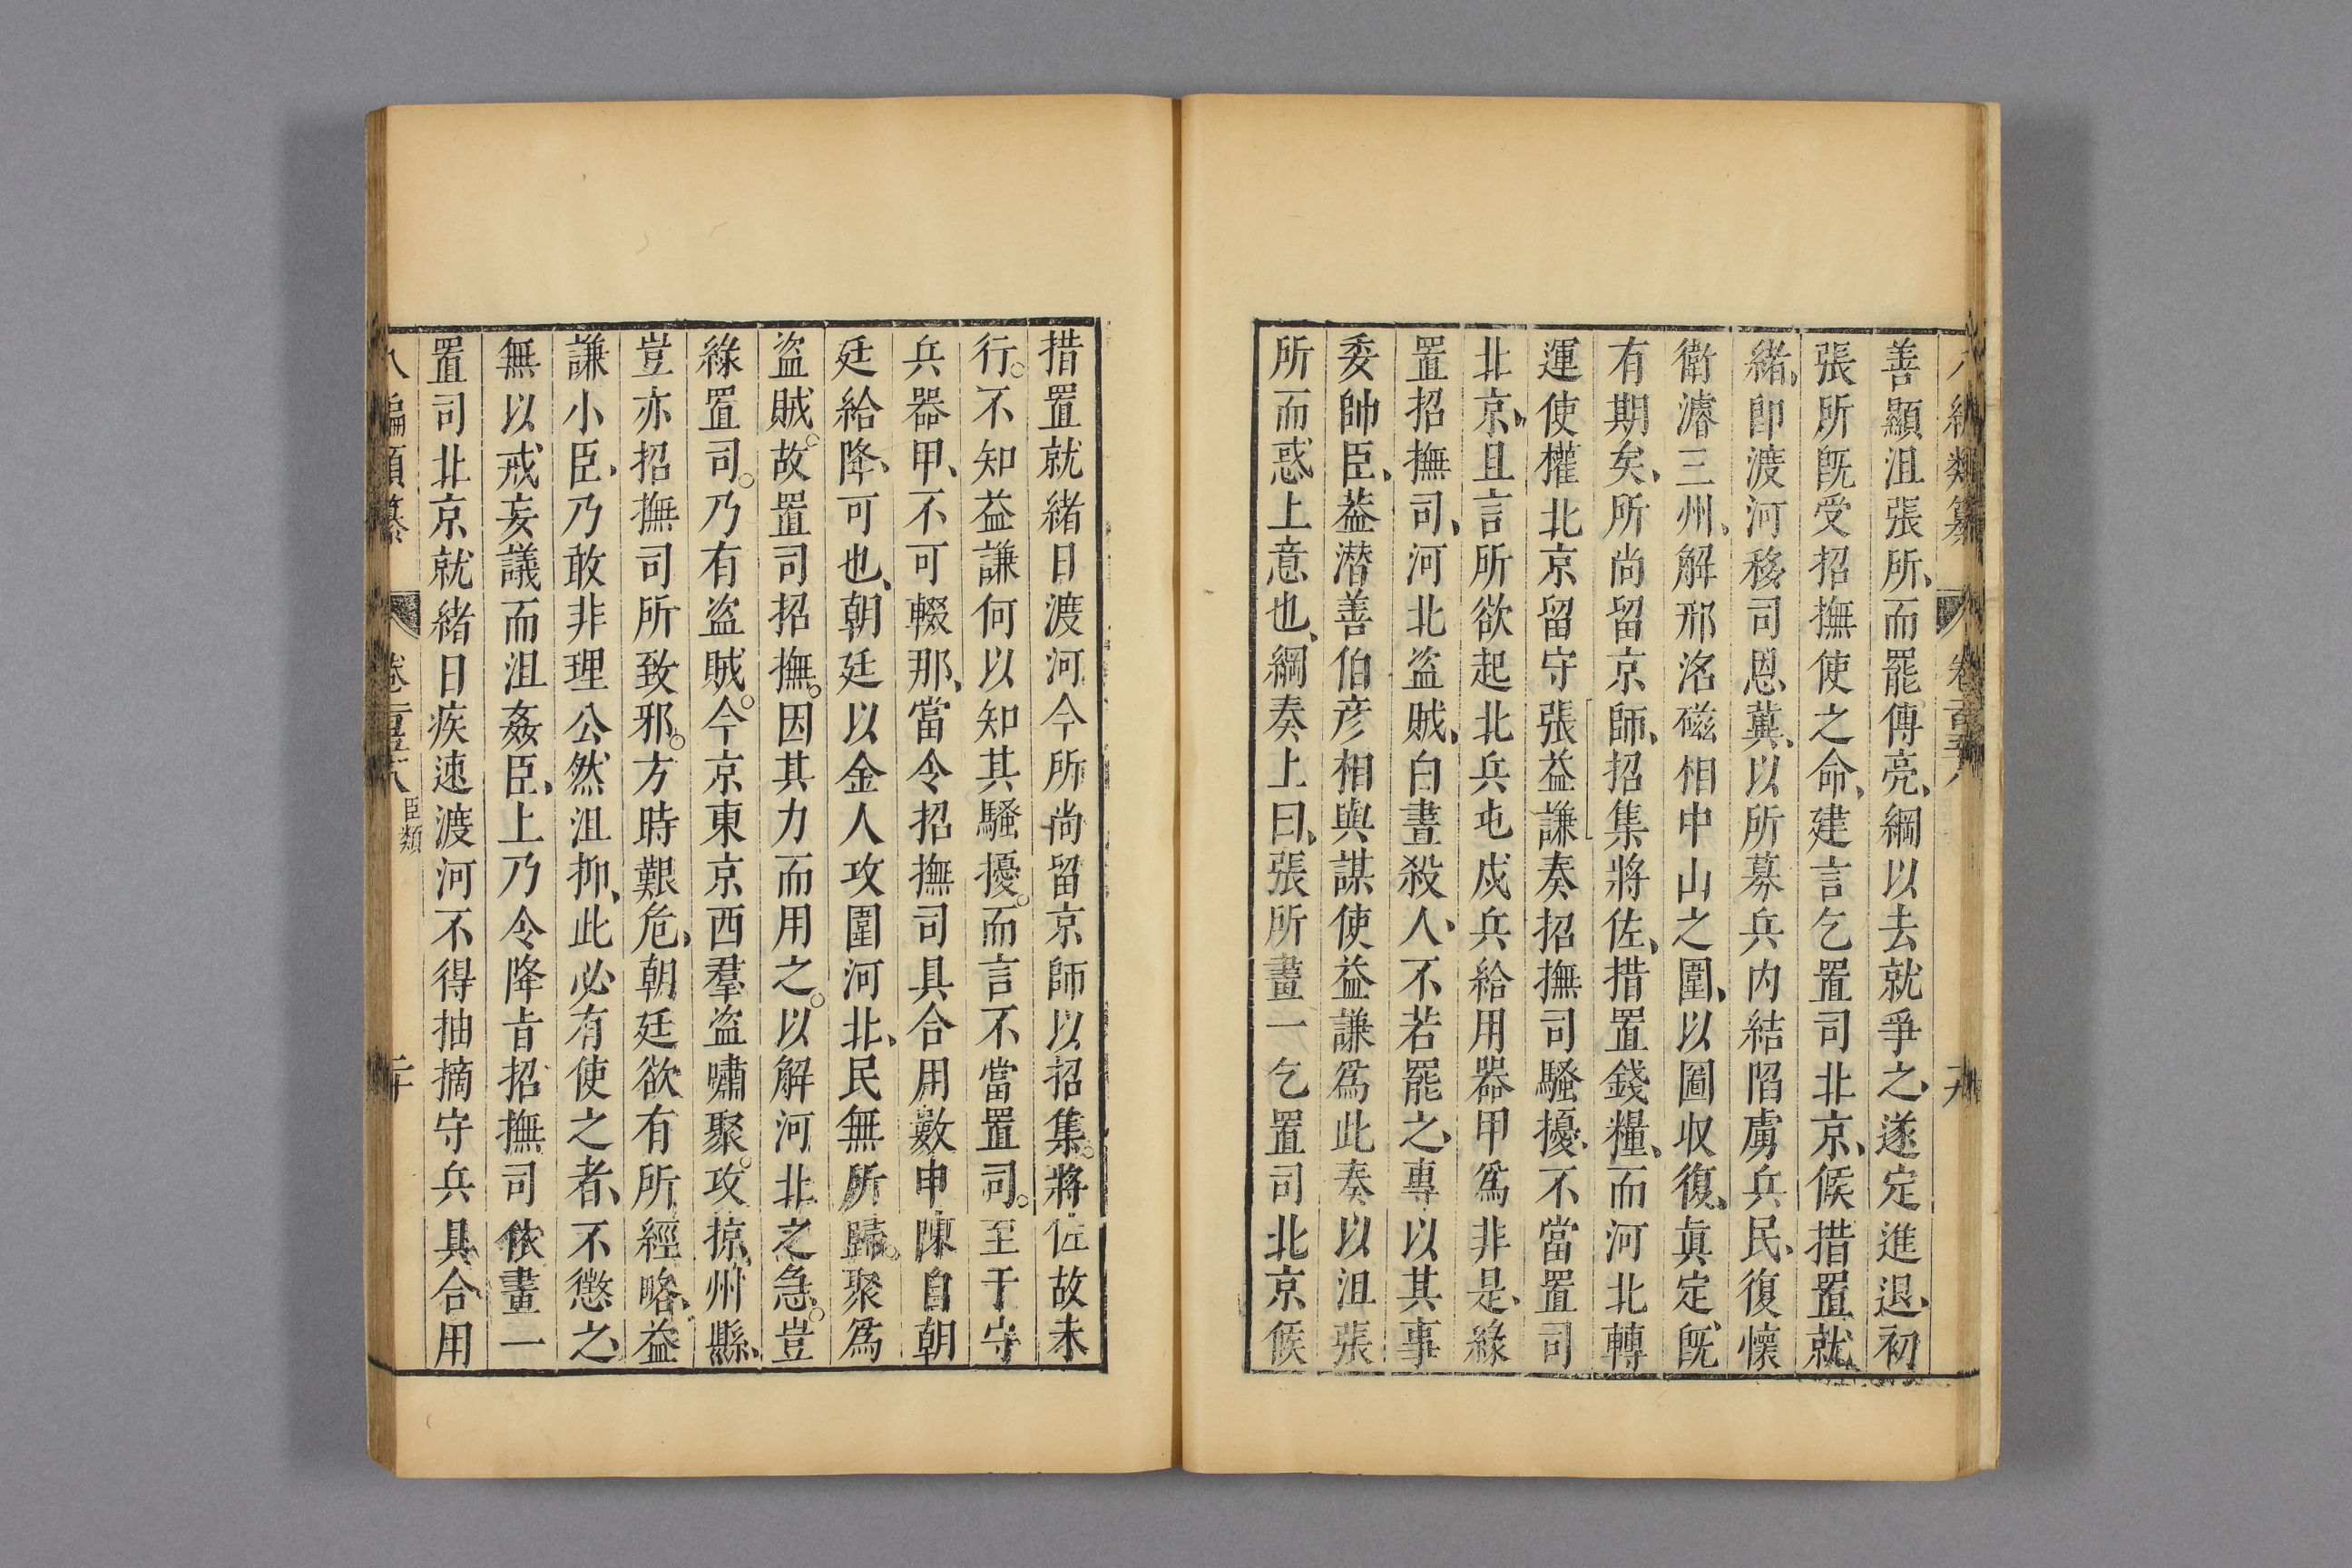 善顯沮張所、而罷傅亮、綱以去就爭之、遂定進退、初
張所旣受招撫使之命、建言乞置司北京、候措置就
緒、即渡河移司恩冀、以所募兵内結陷虜兵民、復懷
衛濬三州、解邢洛磁相中山之圍、以圖收復、眞定旣
有期矣、所尚留京師、招集將佐、措置錢糧、而河北轉
運使權北京留守張益謙奏招撫司騷擾、不當置司
北京、且言所欲起北兵屯戍兵給用器甲爲非是、緣
置招撫司、河北盜賊、白晝殺人、不若罷之、專以其事
委帥臣、葢潛善伯彦相與謀使益謙爲此奏以沮張
所而惑上意也、綱奏上曰、張所畫一乞置司北京候
措置就緒日渡河今所尚留京師以招集。將佐故未
行。不知益謙何以知其騷擾。而言不當置司。至于守
兵器甲、不可輟那、當令招撫司具合用數申陳自朝
廷給降、可也、朝廷以金人攻圍河北、民無所歸。聚爲
盜賊。故置司招撫。因其力而用之。以解河北之急。豈
緣置司。乃有盜賊。今京東京西羣盜嘯聚。攻掠、州縣、
豈亦招撫司所致邪。方時艱危、朝廷欲有所經略、益
謙小臣、乃敢非理公然沮抑、此必有使之者、不懲之、
無以戒妄議而沮姦臣、上乃令降旨招撫司依畫一
置司北京就緒日疾速渡河不得抽摘守兵具合用
編類纂 卷 臣類